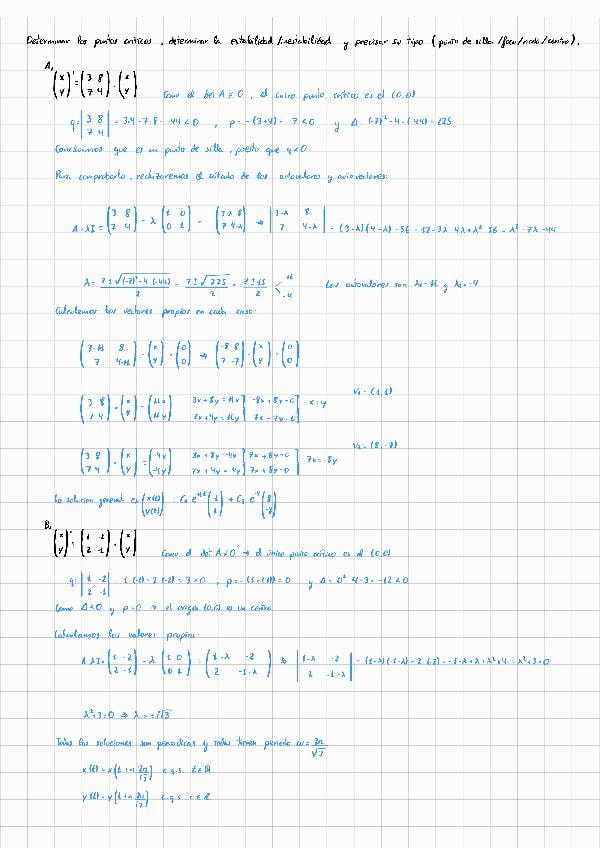 Determinar los puntos críticos, determinar la estabilidad/inestabilidad y precisar su tipo (punto de silla/foco/nodo/centro).
A,
(x y)' = (3 8 7 4) · (x y) Como el det A ≠ 0, el único punto crítico es el (0,0)
q = |3 8 7 4| = 3·4 - 7·8 = -44 < 0, p = -(3+4) = -7 < 0 y Δ = (-7)² - 4·(-44) = 225
Concluimos que es un punto de silla, puesto que q < 0
Para comprobarlo, realizaremos el cálculo de los autovalores y autovectores:
A - λI = (3 8 7 4) - λ (1 0 0 1) = (3-λ 8 7 4-λ) → |3-λ 8 7 4-λ| = (3-λ)(4-λ) - 56 = 12 - 3λ - 4λ + λ² - 56 = λ² - 7λ - 44
λ = 7 ± √((-7)² - 4·(-44)) / 2 = 7 ± √225 / 2 = 7 ± 15 / 2 < 11 -4 Los autovalores son λ₁ = 11 y λ₂ = -4
Calculemos los vectores propios en cada caso:
(3-11 8 7 4-11) · (x y) = (0 0) → (-8 8 7 -7) · (x y) = (0 0)
(3 8 7 4) · (x y) = (11x 11y) 3x + 8y = 11x 7x + 4y = 11y] -8x + 8y = 0 7x - 7y = 0] x = y V₁ = (1,1)
(3 8 7 4) · (x y) = (-4x -4y) 3x + 8y = -4x 7x + 4y = -4y] 7x + 8y = 0 7x + 8y = 0] 7x = -8y V₂ = (8,-7)
La solución general es (x(t) y(t)) = C₁ e^11t (1 1) + C₂ e^-4 (8 -7)
B,
(x y)' = (1 -2 2 -1) · (x y) Como el det A ≠ 0 → el único punto crítico es el (0,0)
q = |1 -2 2 -1| = 1·(-1) - 2·(-2) = 3 > 0, p = -(1+(-1)) = 0 y Δ = 0² - 4·3 = -12 < 0
Como Δ < 0 y p = 0 → el origen (0,0) es un centro
Calculamos los valores propios:
A - λI = (1 -2 2 -1) - λ (1 0 0 1) = (1-λ -2 2 -1-λ) → |1-λ -2 2 -1-λ| = (1-λ)(-1-λ) - 2·(-2) = -1 - λ + λ + λ² + 4 = λ² + 3 = 0
λ² + 3 = 0 → λ = ± i√3
Todas las soluciones son periodicas y todas tienen periodo ω = 2π/√3
x(t) = x(t + n 2π/√3) c.q.s t ∈ ℝ
y(t) = y(t + n 2π/√3) c.q.s